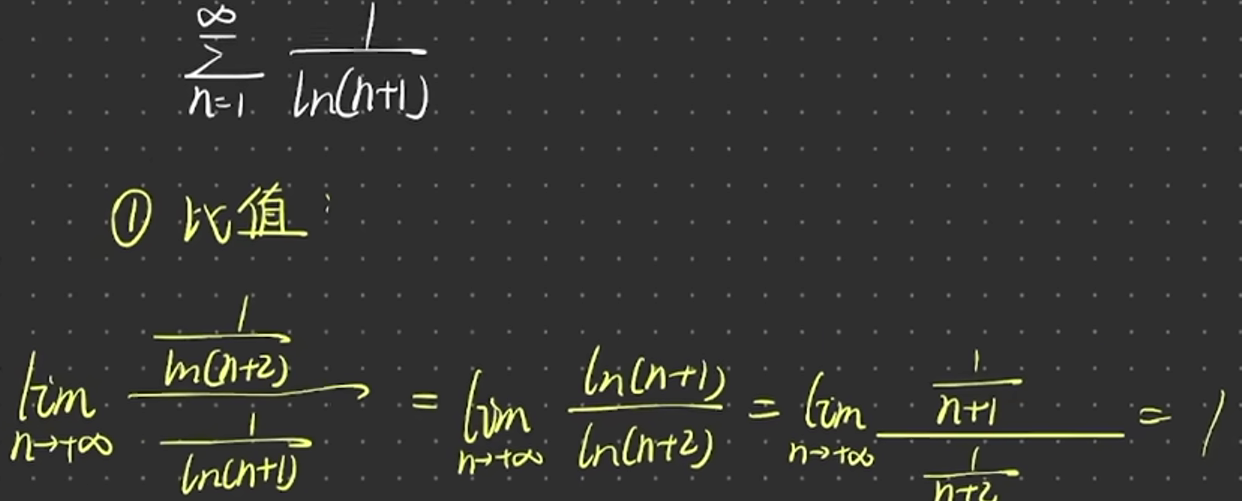 ∞
∑ 1/ln(n+1)
n=1
① 比值:
lim n→+∞ (1/ln(n+2))/(1/ln(n+1)) = lim n→+∞ ln(n+1)/ln(n+2) = lim n→+∞ (1/(n+1))/(1/(n+2)) = 1